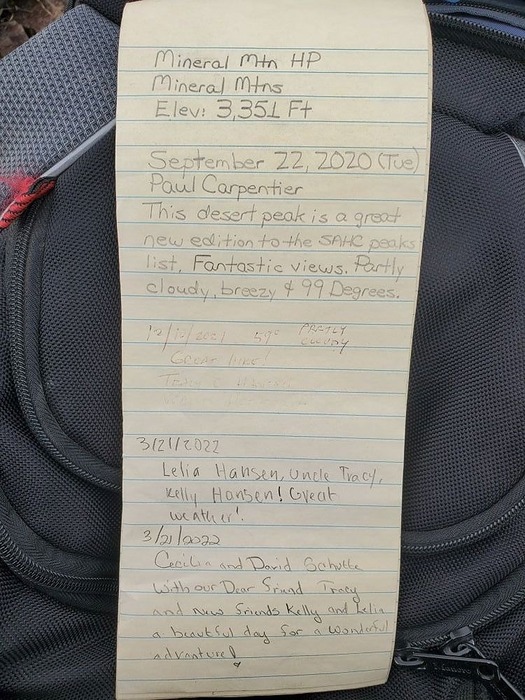 Mineral Mtn HP
Mineral Mtns
Elev: 3,351 Ft
September 22, 2020 (Tue)
Paul Carpentier
This desert peak is a great
new edition to the SAHC peaks
list. Fantastic views. Partly
cloudy, breezy & 99 Degrees.
12/17/2021 59° PRETLY
CLOUDY
GREAT HIKE!
3/21/2022
Lelia Hansen, Uncle Tracy,
Kelly Hansen! Great
weather!
3/21/2022
Cecilia and David Schulte
with our Dear friend Tracy
and new friends Kelly and Lelia
a beautiful day for a wonderful
adventure!